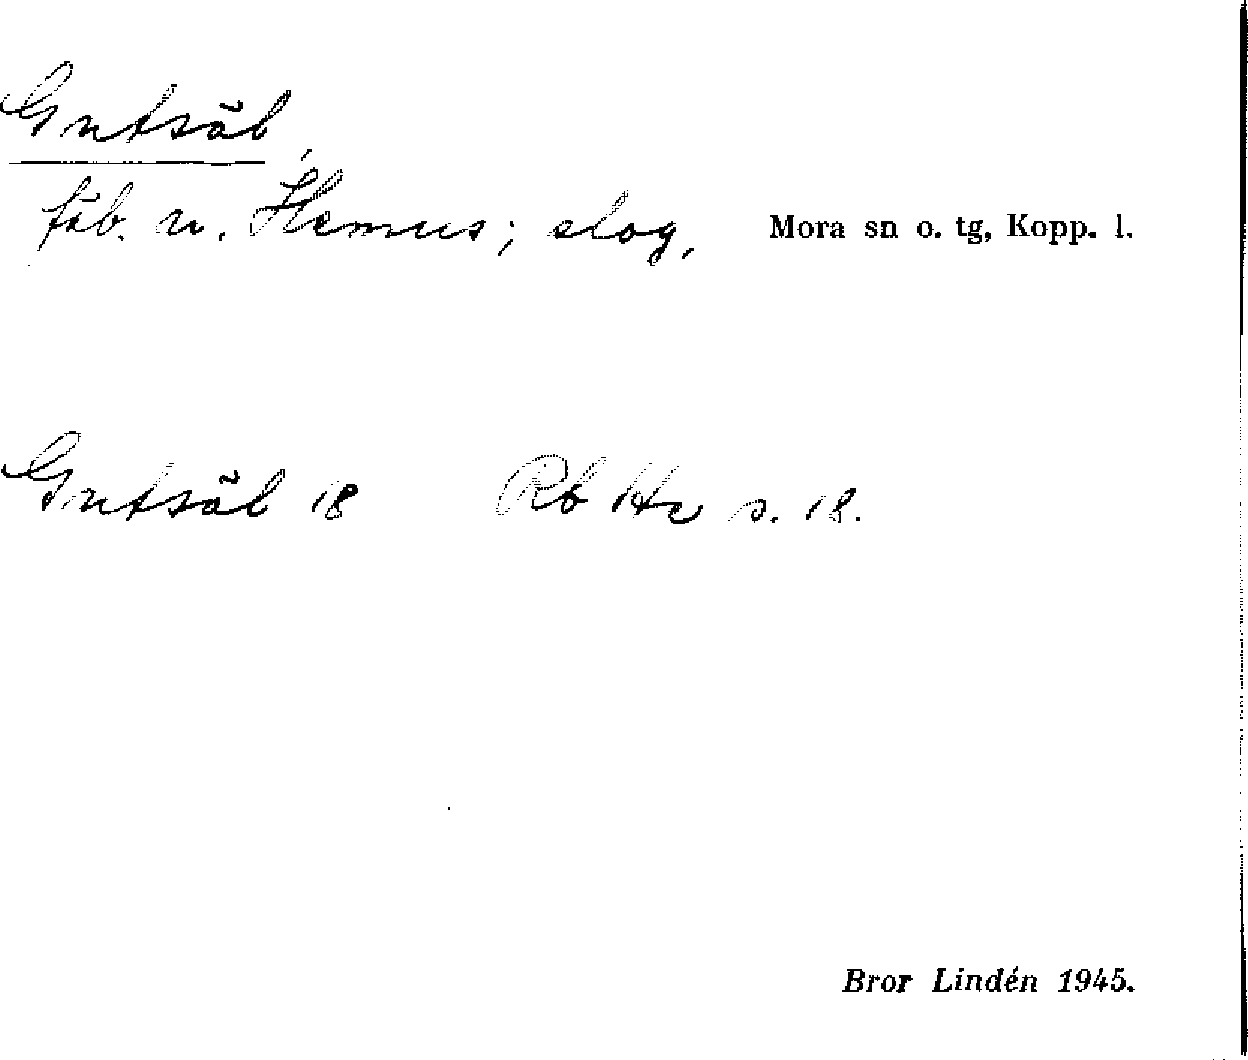 Gutsäl,
fäb. v. Hemus; slog, Mora sn o. tg, Kopp. l.
Gutsäl 18 Rb Hc s. 18.
Bror Lindén 1945.